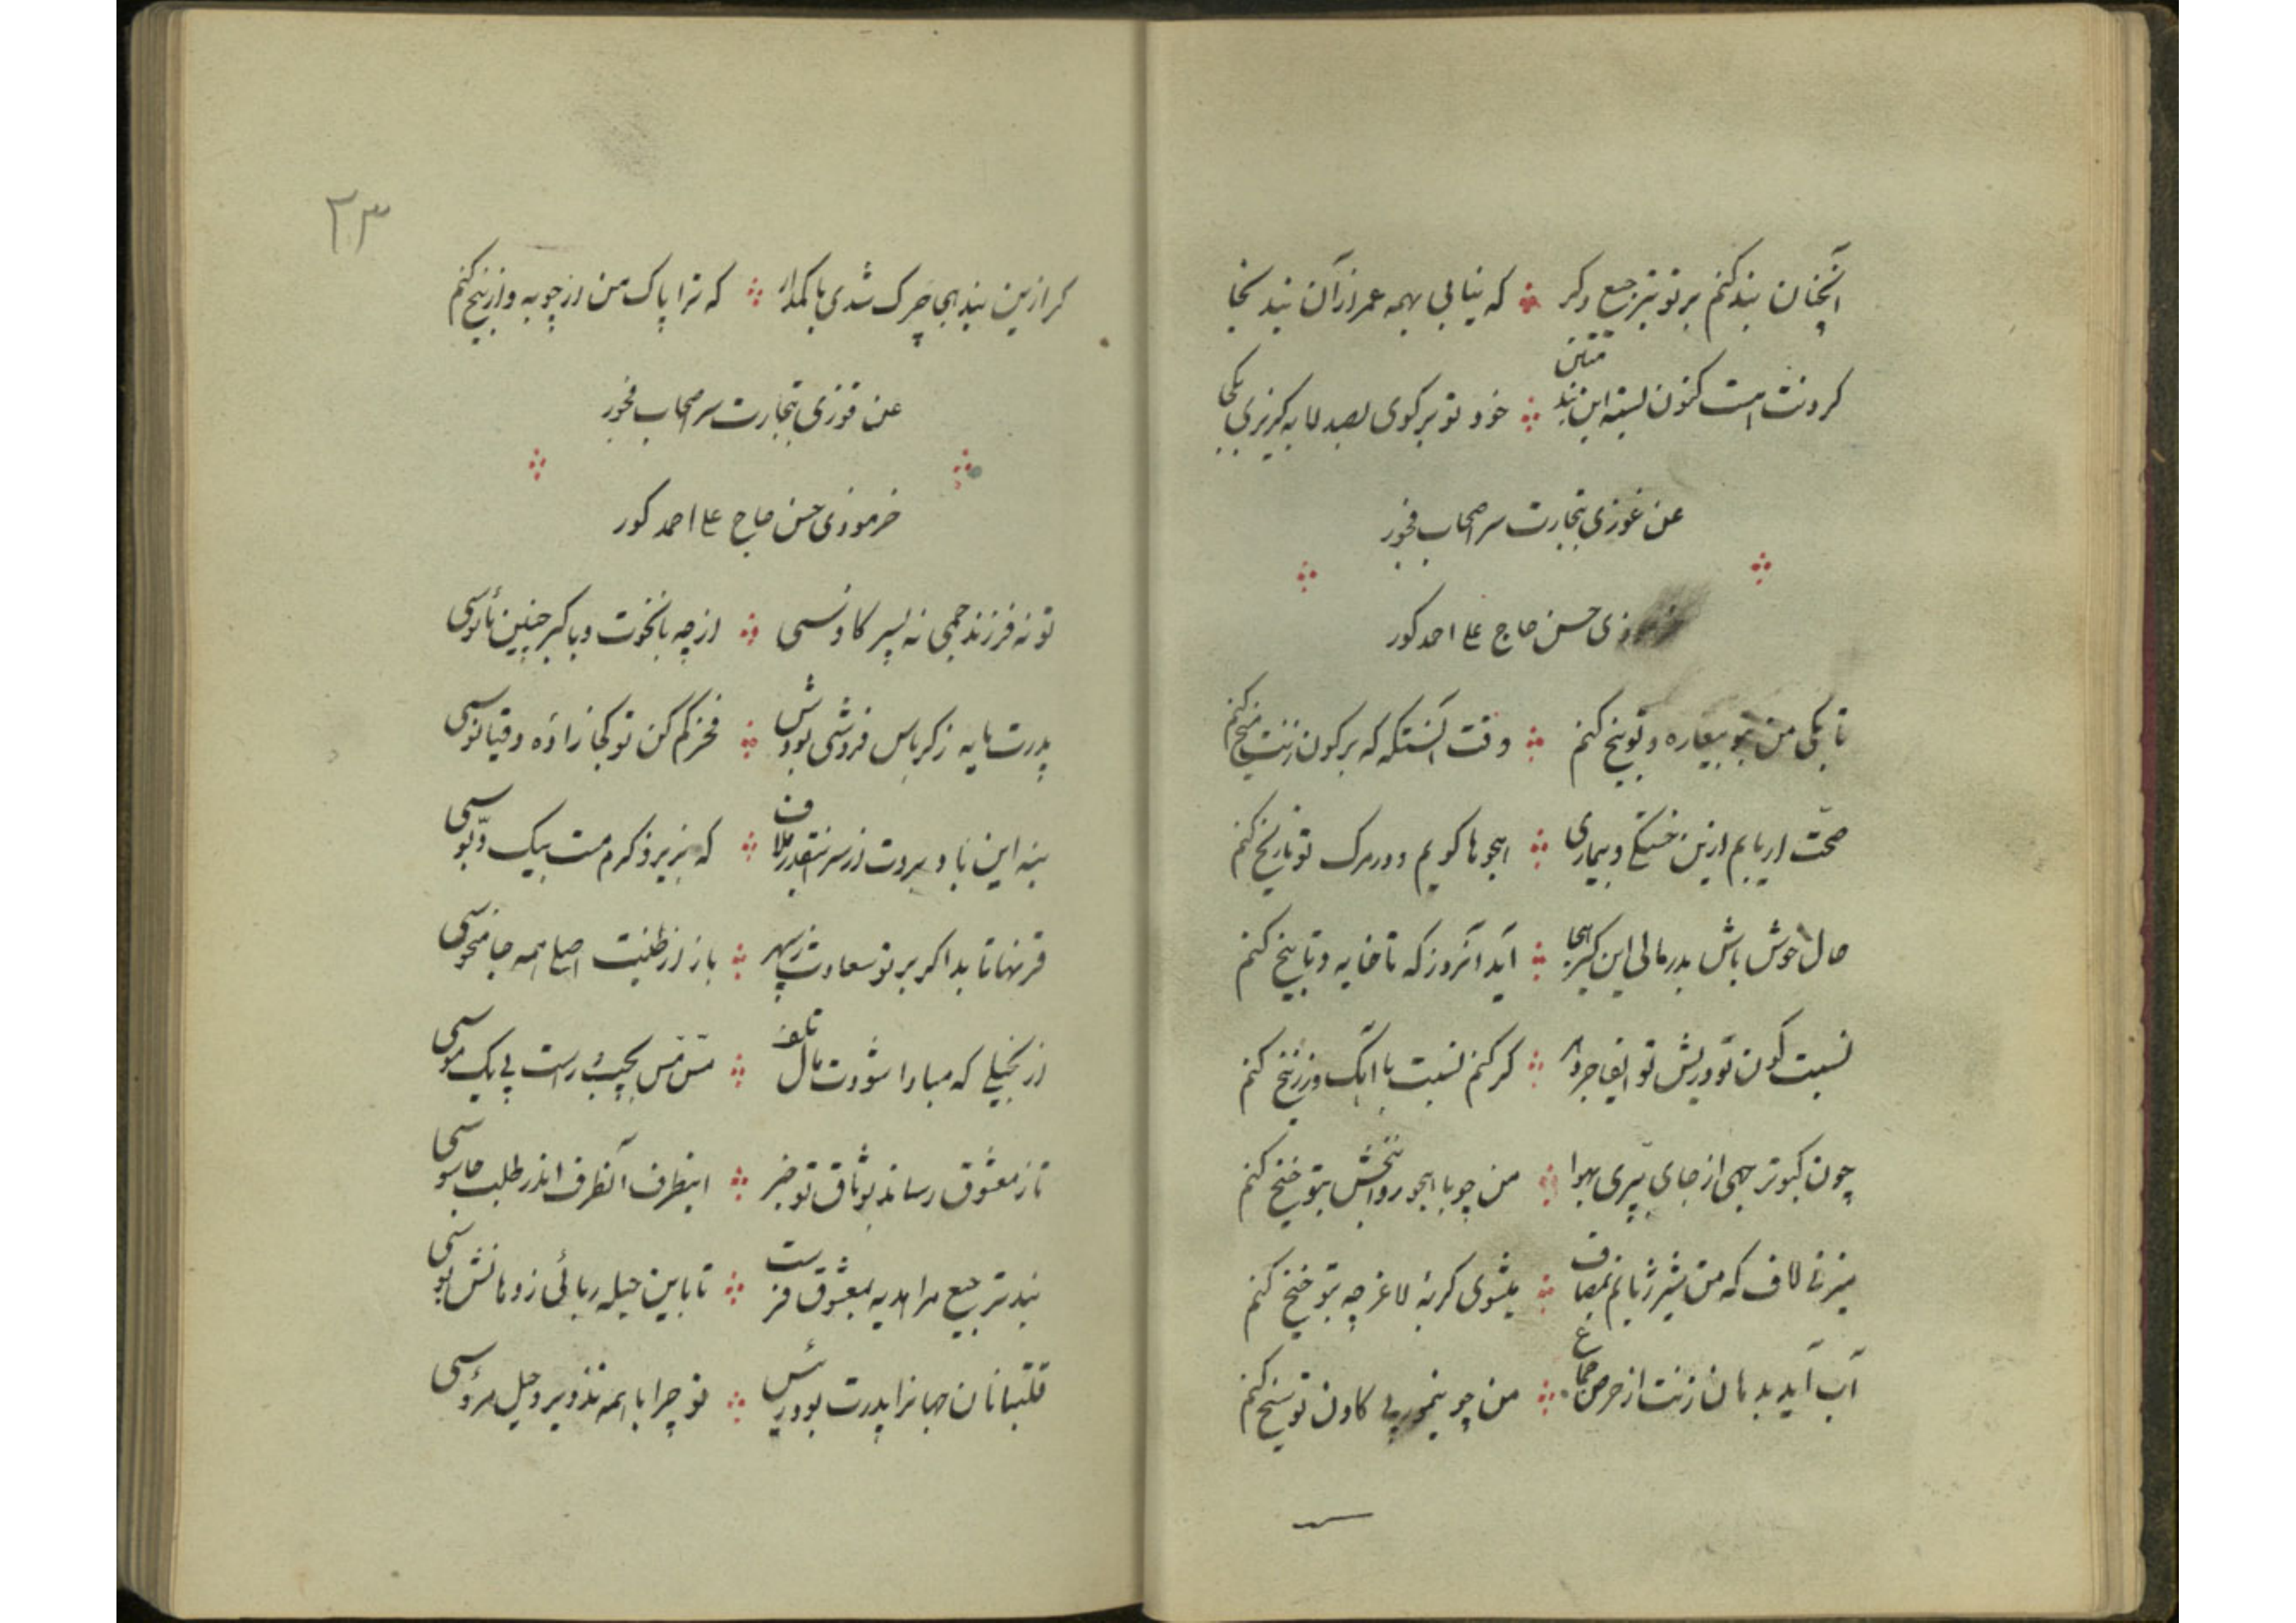 آنچنان بند کنم بر تو بترجیع دگر که نیابی بهمه عمر از آن بند نجا
گردنت هست کنون بسته این بند متین خود تو بر گوی بصد لابه گریزی بکی
عن غوزی بتجارت سر اصحاب فجور
زی حسن حاج علی احمد کور
تا بکی من بتو بیغاره و توبیخ کنم وقت آنستکه که بر کون زنت میخ کنم
صحّت ار یابم ازین خستگی و بیماری هجوها گویم و در مرگ تو تاریخ کنم
حال خوش باش بدرمالی این کیر هجا آید آنروز که تا خایه و تا بیخ کنم
نسبت کون تو و ریش تو ایفا جره گر کنم نسبت با آهک و زرنیخ کنم
چون کبوتر جهی از جای بپری بهوا من چو با هجو روانبخش بتو خیخ کنم
میزنی لاف که من شیر ژیانم بمصاف بشوی گربه لاغر چه بتو خیخ کنم
آب آید بدهان زنت از حرص جماع من چو پی کادن تو سیخ کنم
۲۳
گر ازین بند هجا چرک شدی باکمدار که ترا پاک من از چوبه و ازنیخ کنم
عن قوزی بتجارت سر اصحاب فجور
خرموذی حسن حاج علی احمد کور
تو نه فرزند جمی نه پسر کاوسی از چه با نخوت و با کبر چنین مأنوسی
پدرت مایه ز کرباس فروشی بودش فخر کم کن تو کجا زاده دقیانوسی
بنه این باد و بروت از سر اینقدر ملاف که بزیر و کرمت بیک دبّوسی
قرنها تابد اگر بر تو سعادت ز سپهر باز از طینت اصلی همه جا منحوسی
از بخیلی که مبادا شودت مال تلف مسّ مسّ بچپ و راست پی یک موسی
تا ز معشوق رساند بوثاق تو خبر اینطرف آنطرف اندر طلب جاسوسی
بند ترجیع مرا هدیه بمعشوق فرست تا باین حیله ربائی ز دهانش بوسی
قلتبانان جهانرا پدرت بود رئیس تو چرا با همه تذویر و حیل مرؤسی